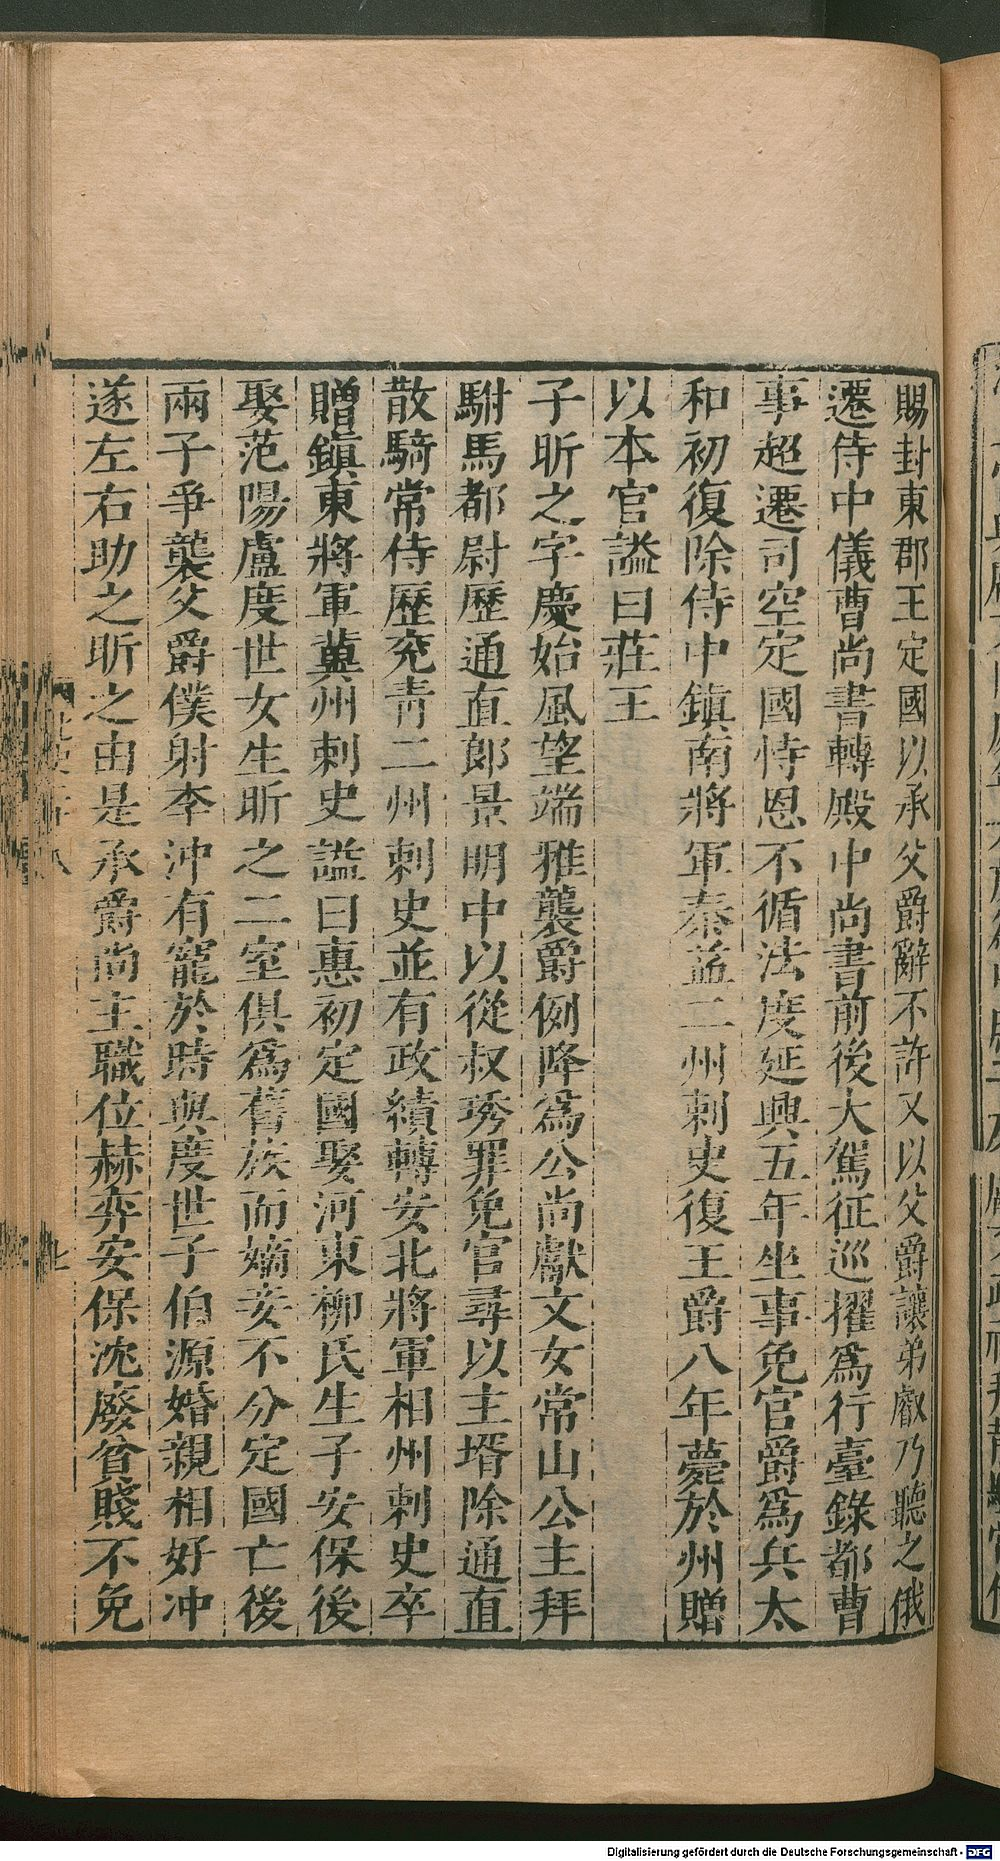 賜封東郡王定國以承父爵辭不許又以父爵讓弟叡乃聽之俄
遷侍中儀曹尚書轉殿中尚書前後大駕征巡擢爲行臺錄都曹
事超遷司空定國恃恩不循法度延興五年坐事免官爵爲兵太
和初復除侍中鎮南將軍秦益二州刺史復王爵八年薨於州贈
以本官諡曰莊王
子昕之字慶始風望端雅襲爵例降爲公尚獻文女常山公主拜
駙馬都尉歷通直郎景明中以從叔琇罪免官尋以主壻除通直
散騎常侍歷兖青二州刺史並有政績轉安北將軍相州刺史卒
贈鎮東將軍冀州刺史諡曰惠初定國娶河東柳氏生子安保後
娶范陽盧度世女生昕之二室俱爲舊族而嫡妾不分定國亡後
兩子爭襲父爵僕射李沖有寵於時與度世子伯源婚親相好沖
遂左右助之昕之由是承爵尚主職位赫弈安保沈廢貧賤不免
Digitalisierung gefördert durch die Deutsche Forschungsgemeinschaft - DFG